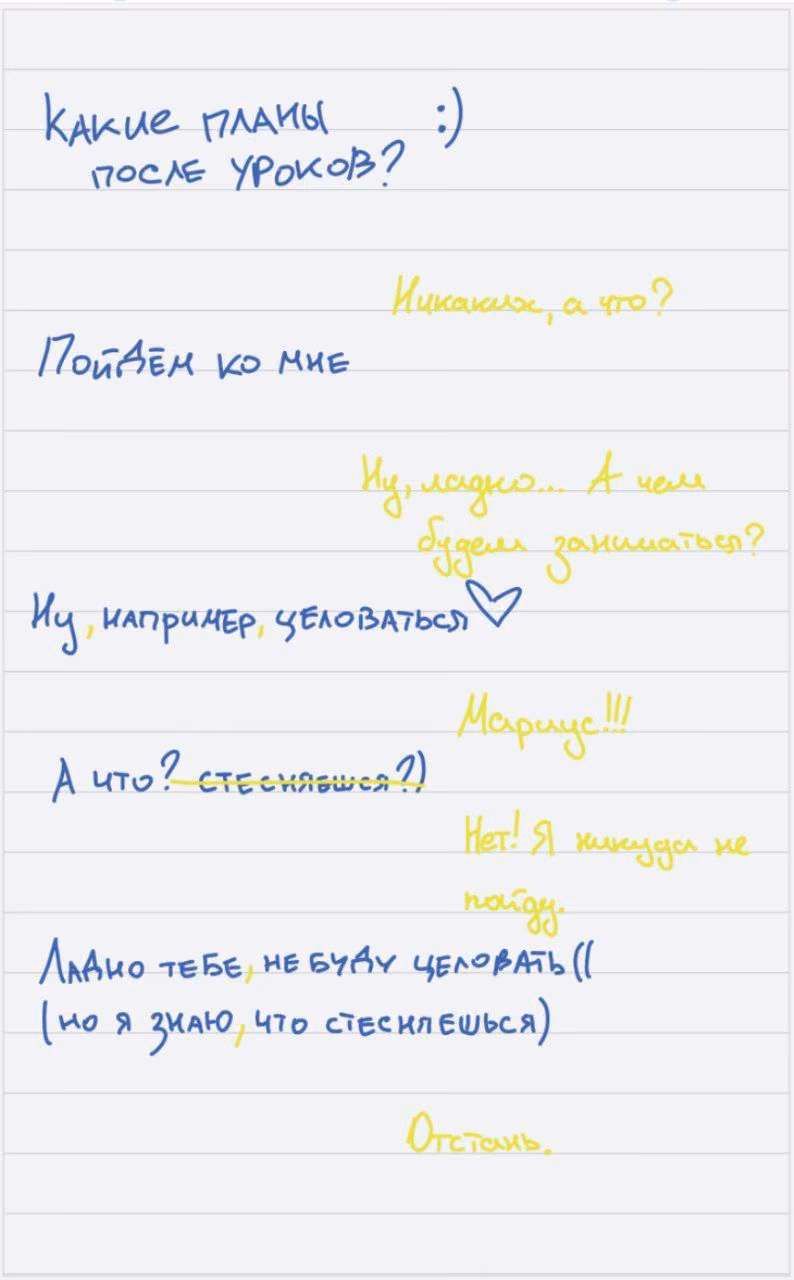 Какие планы :)
после уроков?
Никаких, а что?
Пойдём ко мне
Ну, ладно... А чем
будем заниматься?
Ну, например, целоваться♡
Мариус!!!
А что? стесняешся?)
Нет! Я никуда не
пойду.
Ладно тебе, не буду целовать((
(но я знаю, что стесняешься)
Отстань.